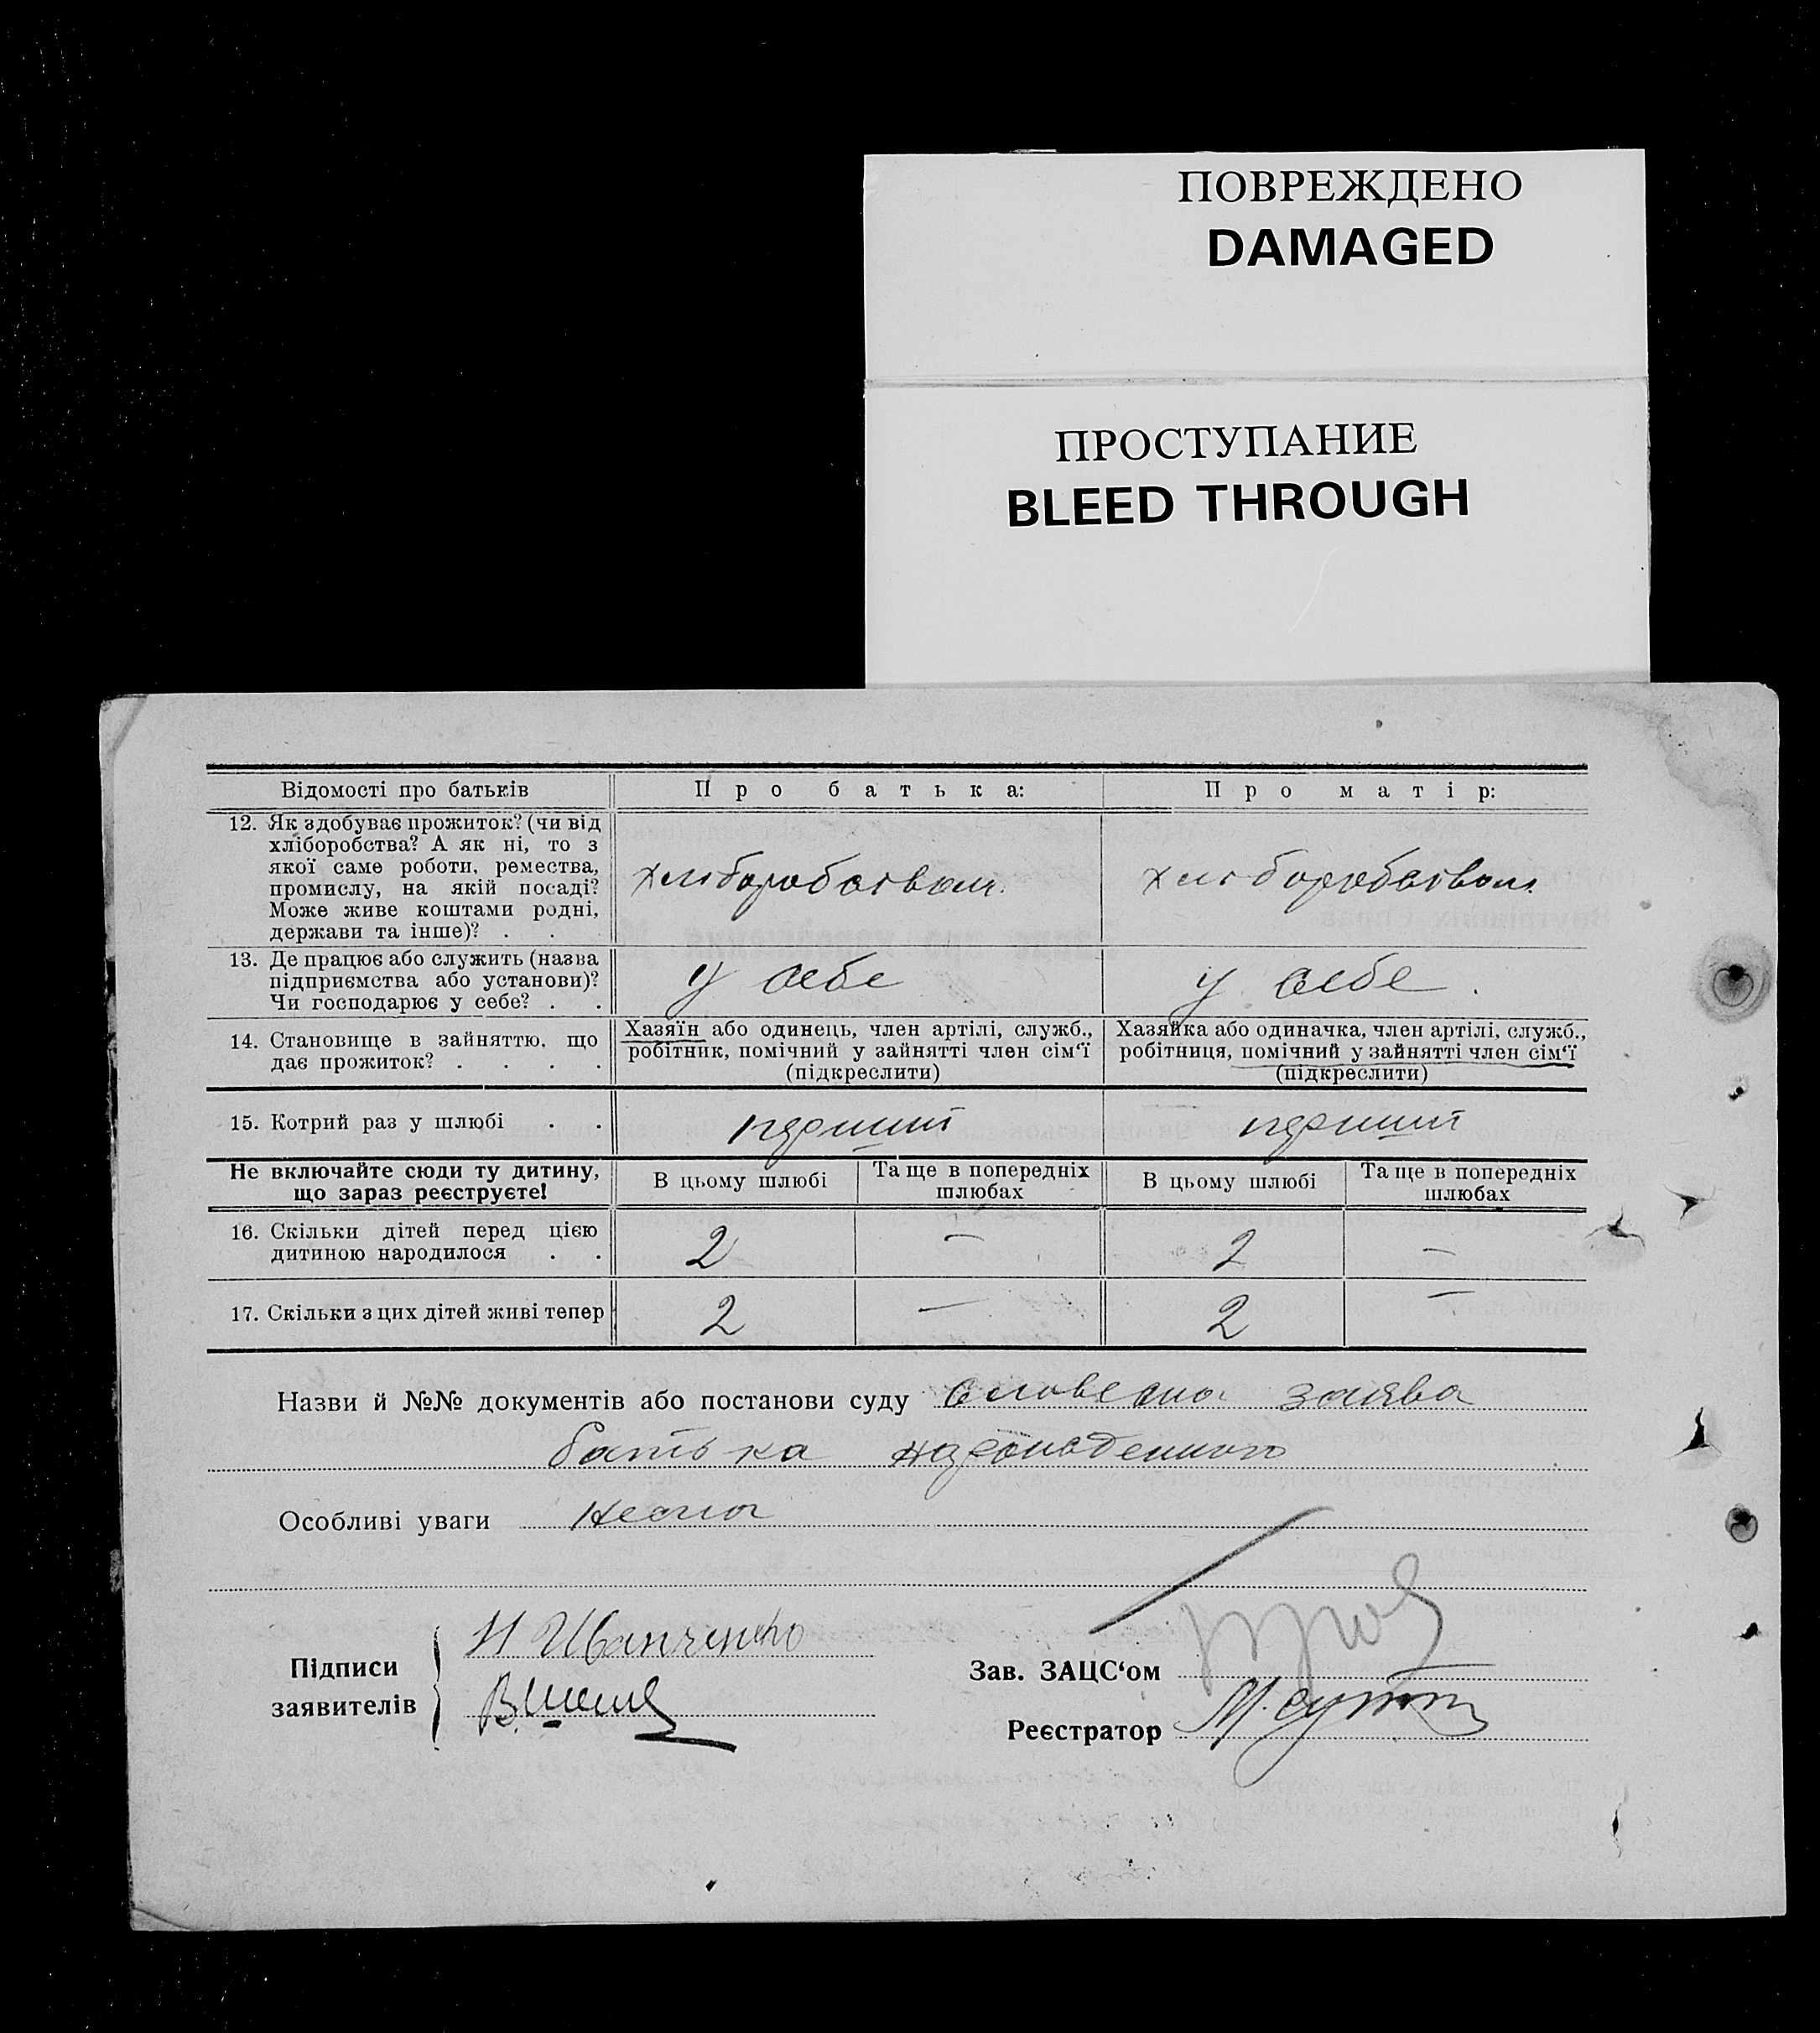 ПОВРЕЖДЕНО
DAMAGED
ПРОСТУПАНИЕ
BLEED THROUGH
Відомості про батьків
Про батька:
Про матір:
12. Як здобуває прожиток? (чи від
хліборобства? А як ні, то з
якої саме роботи, ремества,
промислу, на якій посаді?
Може живе коштами родні,
держави та інше)? . .
хліборобством.
хліборобством.
13. Де працює або служить (назва
підприємства або установи)?
Чи господарює у себе? . .
у себе
у себе.
14. Становище в зайняттю, що
дає прожиток? . . . .
Хазяїн або одинець, член артілі, служб.,
робітник, помічний у зайнятті член сім‘ї
(підкреслити)
Хазяйка або одиначка, член артілі, служб.,
робітниця, помічний у зайнятті член сім‘ї
(підкреслити)
15. Котрий раз у шлюбі . .
перший
перший
Не включайте сюди ту дитину,
що зараз реєструєте!
В цьому шлюбі
Та ще в попередніх
шлюбах
В цьому шлюбі
Та ще в попередніх
шлюбах
16. Скільки дітей перед цією
дитиною народилося . .
2 — 2 —
17. Скільки з цих дітей живі тепер
2 — 2 —
Назви й №№ документів або постанови суду словесна заява
батька народженого
Особливі уваги нема
Підписи
заявителів
И Иванченко
Зав. ЗАЦС‘ом
Реєстратор